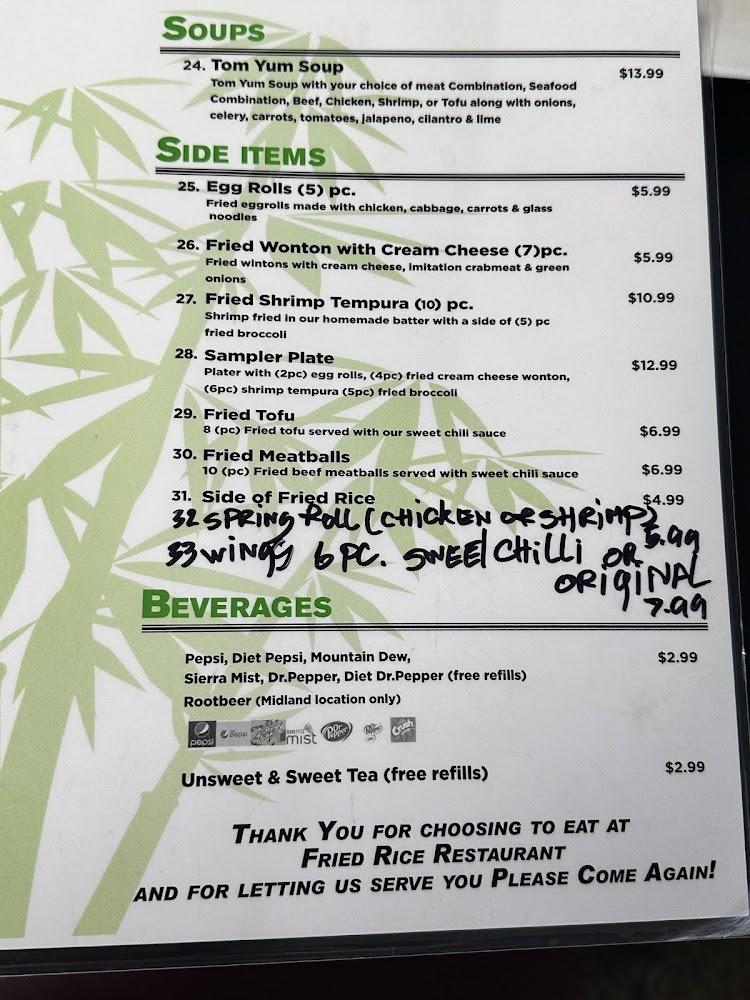 SOUPS
24. Tom Yum Soup $13.99
Tom Yum Soup with your choice of meat Combination, Seafood
Combination, Beef, Chicken, Shrimp, or Tofu along with onions,
celery, carrots, tomatoes, jalapeno, cilantro & lime
SIDE ITEMS
25. Egg Rolls (5) pc. $5.99
Fried eggrolls made with chicken, cabbage, carrots & glass
noodles
26. Fried Wonton with Cream Cheese (7)pc. $5.99
Fried wintons with cream cheese, imitation crabmeat & green
onions
27. Fried Shrimp Tempura (10) pc. $10.99
Shrimp fried in our homemade batter with a side of (5) pc
fried broccoli
28. Sampler Plate $12.99
Plater with (2pc) egg rolls, (4pc) fried cream cheese wonton,
(6pc) shrimp tempura (5pc) fried broccoli
29. Fried Tofu
8 (pc) Fried tofu served with our sweet chili sauce $6.99
30. Fried Meatballs
10 (pc) Fried beef meatballs served with sweet chili sauce $6.99
31. Side of Fried Rice $4.99
32 SPRING ROLL (CHICKEN OR SHRIMP)
5.99
33 WINGS 6 PC. SWEET CHILLI OR
ORIGINAL
7.99
BEVERAGES
Pepsi, Diet Pepsi, Mountain Dew, $2.99
Sierra Mist, Dr.Pepper, Diet Dr.Pepper (free refills)
Rootbeer (Midland location only)
pepsi pepsi sierra mist Dr Pepper Dr Pepper Crush
Unsweet & Sweet Tea (free refills) $2.99
THANK YOU FOR CHOOSING TO EAT AT
FRIED RICE RESTAURANT
AND FOR LETTING US SERVE YOU PLEASE COME AGAIN!